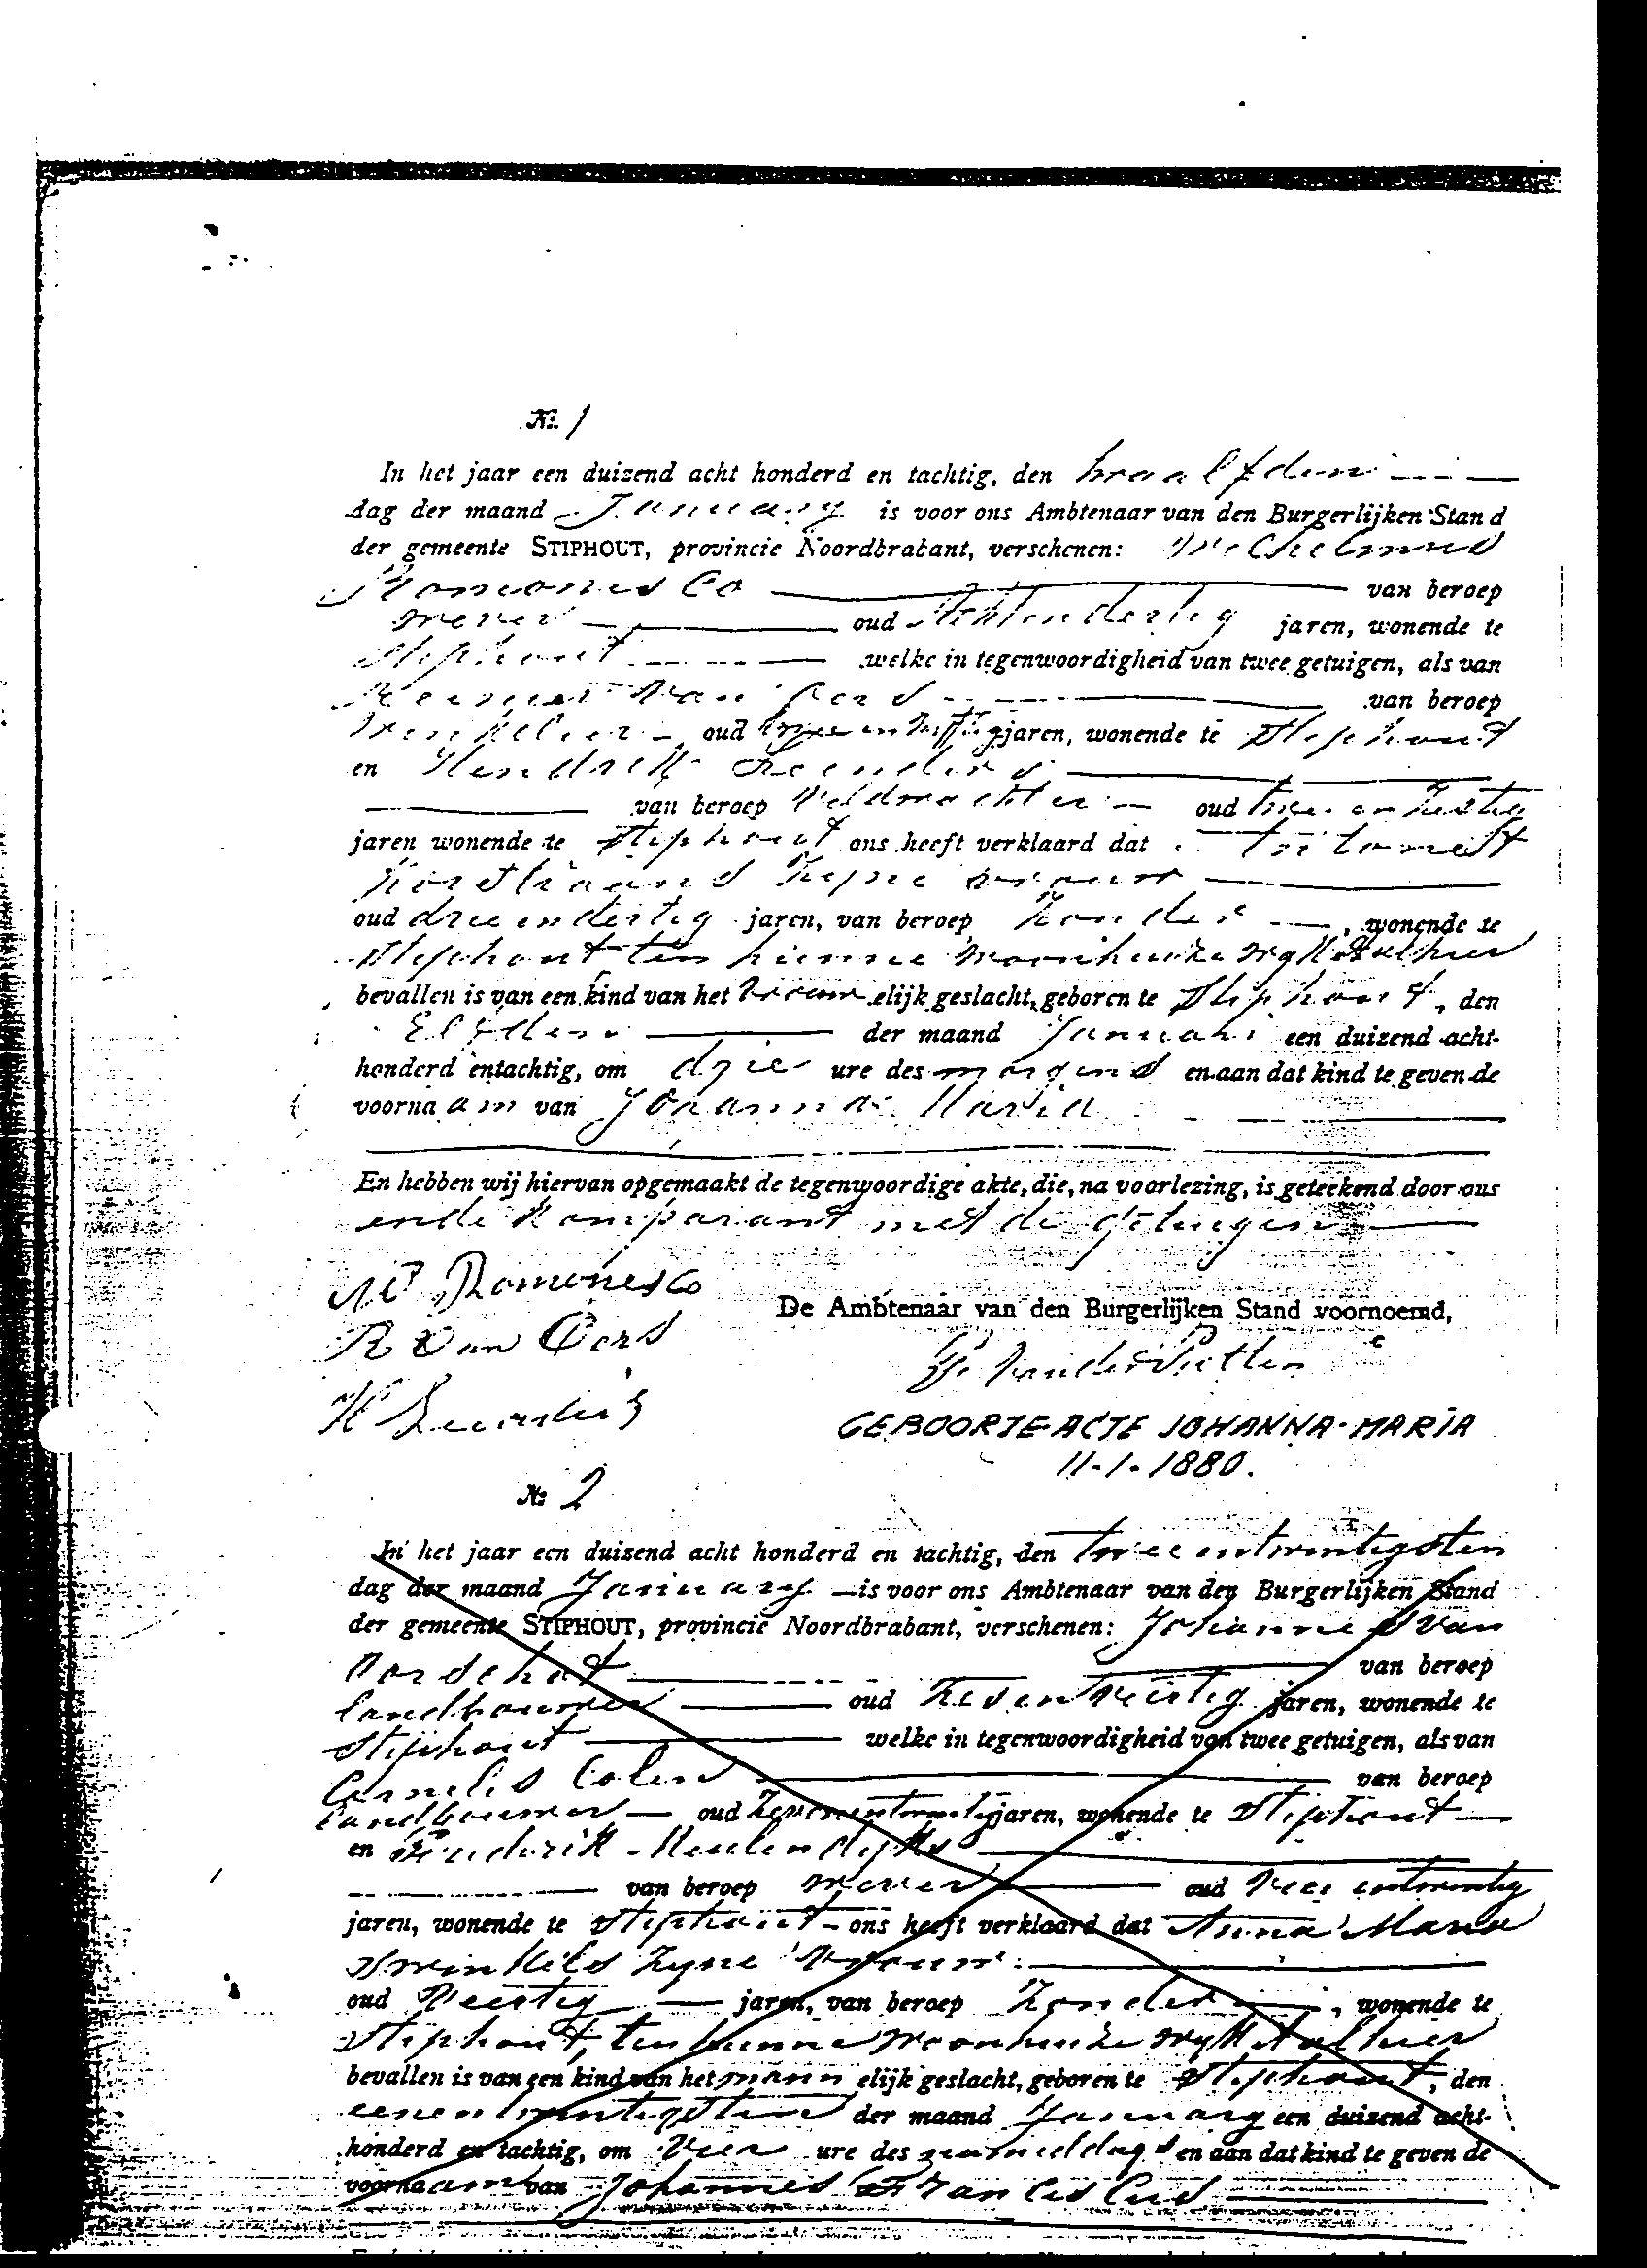 No. 1
In het jaar een duizend acht honderd en tachtig, den twaalfden
dag der maand January is voor ons Ambtenaar van den Burgerlijken Stand
der gemeente STIPHOUT, provincie Noordbrabant, verschenen: Wilhelmus
Romonesco van beroep
wever oud Achtendertig jaren, wonende te
Stiphout welke in tegenwoordigheid van twee getuigen, als van
van Oers van beroep
Winkelier oud twee en jaren, wonende te Stiphout
en Hendrik Leenders
van beroep Veldwachter oud twee en
jaren wonende te Stiphout ons heeft verklaard dat
zijne vrouw
oud drieendertig jaren, van beroep zonder, wonende te
Stiphout ten hunne woonhuize wijk alhier
bevallen is van een kind van het vrouwelijk geslacht, geboren te Stiphout, den
Elfden der maand Januari een duizend acht-
honderd entachtig, om drie ure des morgens en aan dat kind te geven de
voornaam van Johanna Maria
En hebben wij hiervan opgemaakt de tegenwoordige akte, die, na voorlezing, is geteekend door ons
en de komparant met de getuigen
W Romonesco
De Ambtenaar van den Burgerlijken Stand voornoemd,
R van Oers
van der Putten
H Leenders
GEBOORTE-ACTE JOHANNA-MARIA
11-1-1880.
No. 2
In het jaar een duizend acht honderd en tachtig, den tweeentwintigsten
dag der maand January is voor ons Ambtenaar van den Burgerlijken Stand
der gemeente STIPHOUT, provincie Noordbrabant, verschenen: Johannes van
Oorschot van beroep
landbouwer oud Zevenveertig jaren, wonende te
Stiphout welke in tegenwoordigheid van twee getuigen, als van
Cornelis Colen van beroep
landbouwer oud Zevenentwintig jaren, wonende te Stiphout
en Frederik Meulendijks
van beroep wever oud Vier entwintig
jaren, wonende te Stiphout ons heeft verklaard dat Anna Maria
Swinkels zyne Vrouw
oud Veertig jaren, van beroep Zonder, wonende te
Stiphout, ten hunne woonhuize wijk A alhier
bevallen is van een kind van het mannelijk geslacht, geboren te Stiphout, den
eenentwintigsten der maand January een duizend acht-
honderd en tachtig, om Vier ure des namiddags en aan dat kind te geven de
voornaam van Johannes Franciscus